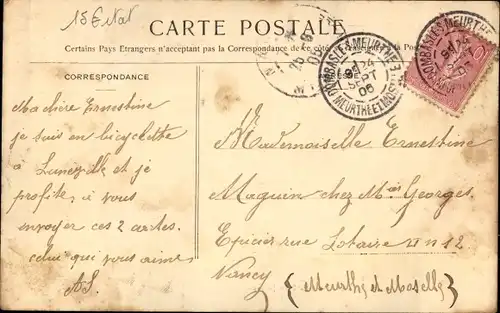 15 Etat
CARTE POSTALE
Certains Pays Etrangers n'acceptent pas la Correspondance de ce côté
CORRESPONDANCE
Ma chère Ernestine
je suis en bicyclette
à Lunéville et je
profite, à vous
envoyer ces 2 cartes.
celui qui vous aime
AS.
DOMBASLE S. MEURTHE
MEURTHE ET MOSELLE
24
SEPT
06
Mademoiselle Ernestine
Maguin chez Georges
Epicier rue Lotaire n 12
Nancy
(Meurthe et Moselle)